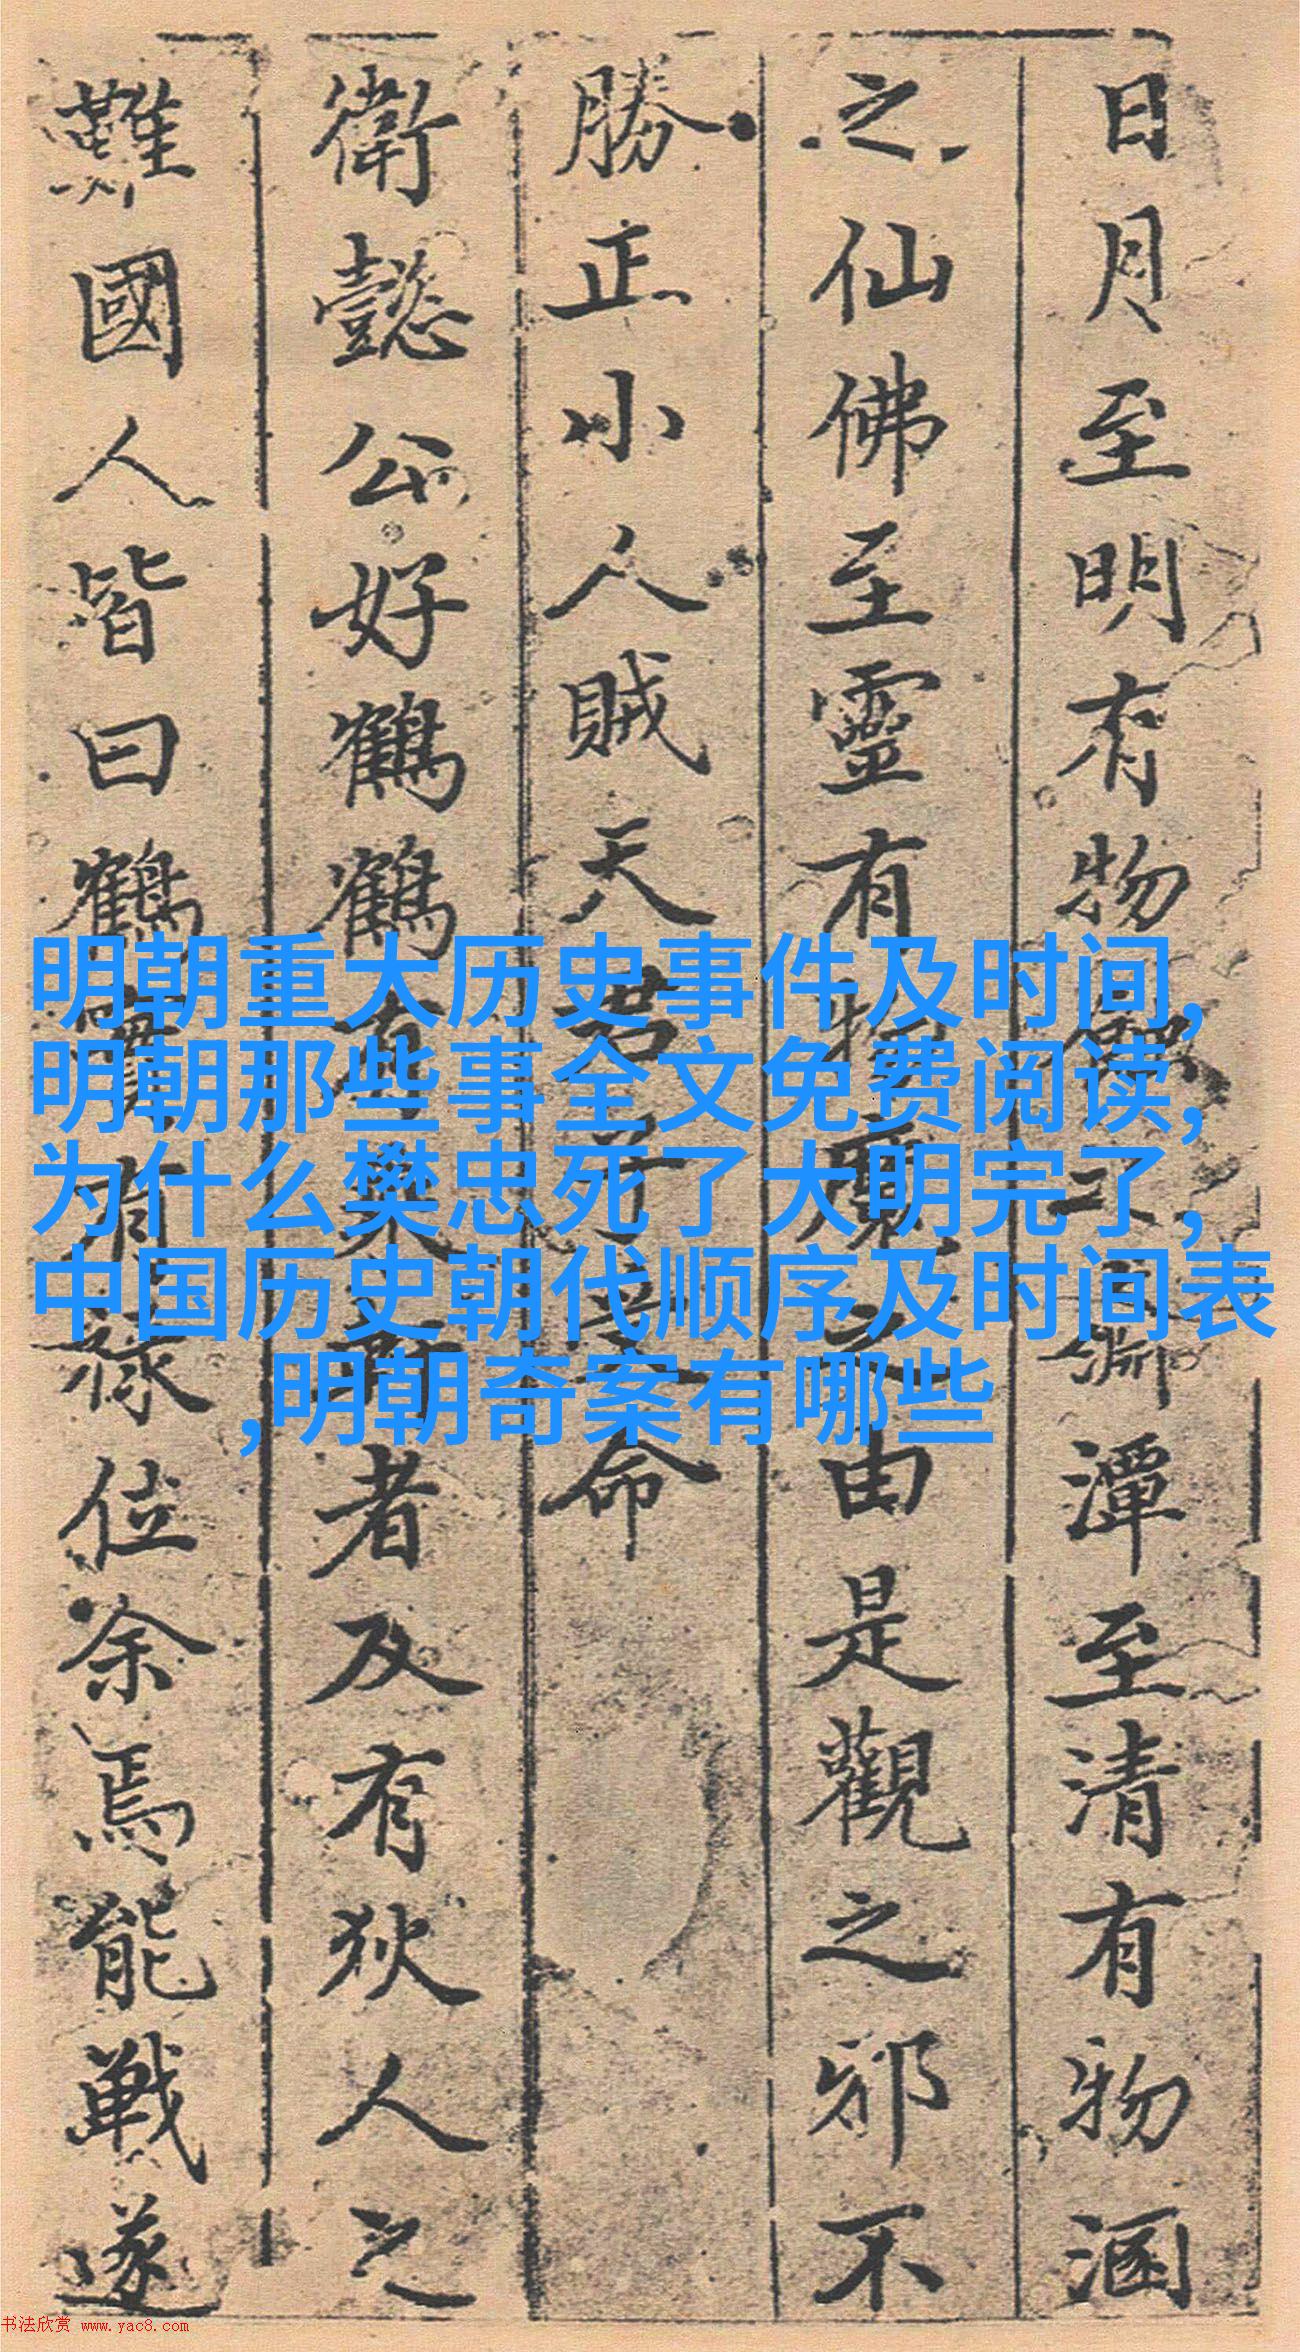 日月至明有物之淵潭至清有物涵
之仙佛至靈有物魔之由是觀之邪不
勝正小人賊天君子命
衛懿公好鶴鶴有乘軒者及有狄人之
難國人皆曰鶴實有祿位余焉能戰遂
明朝重大历史事件及时间,
明朝那些事全文免费阅读,
为什么樊忠死了大明完了,
中国历史朝代顺序及时间表
,明朝奇案有哪些
书法欣赏 www.yac8.com